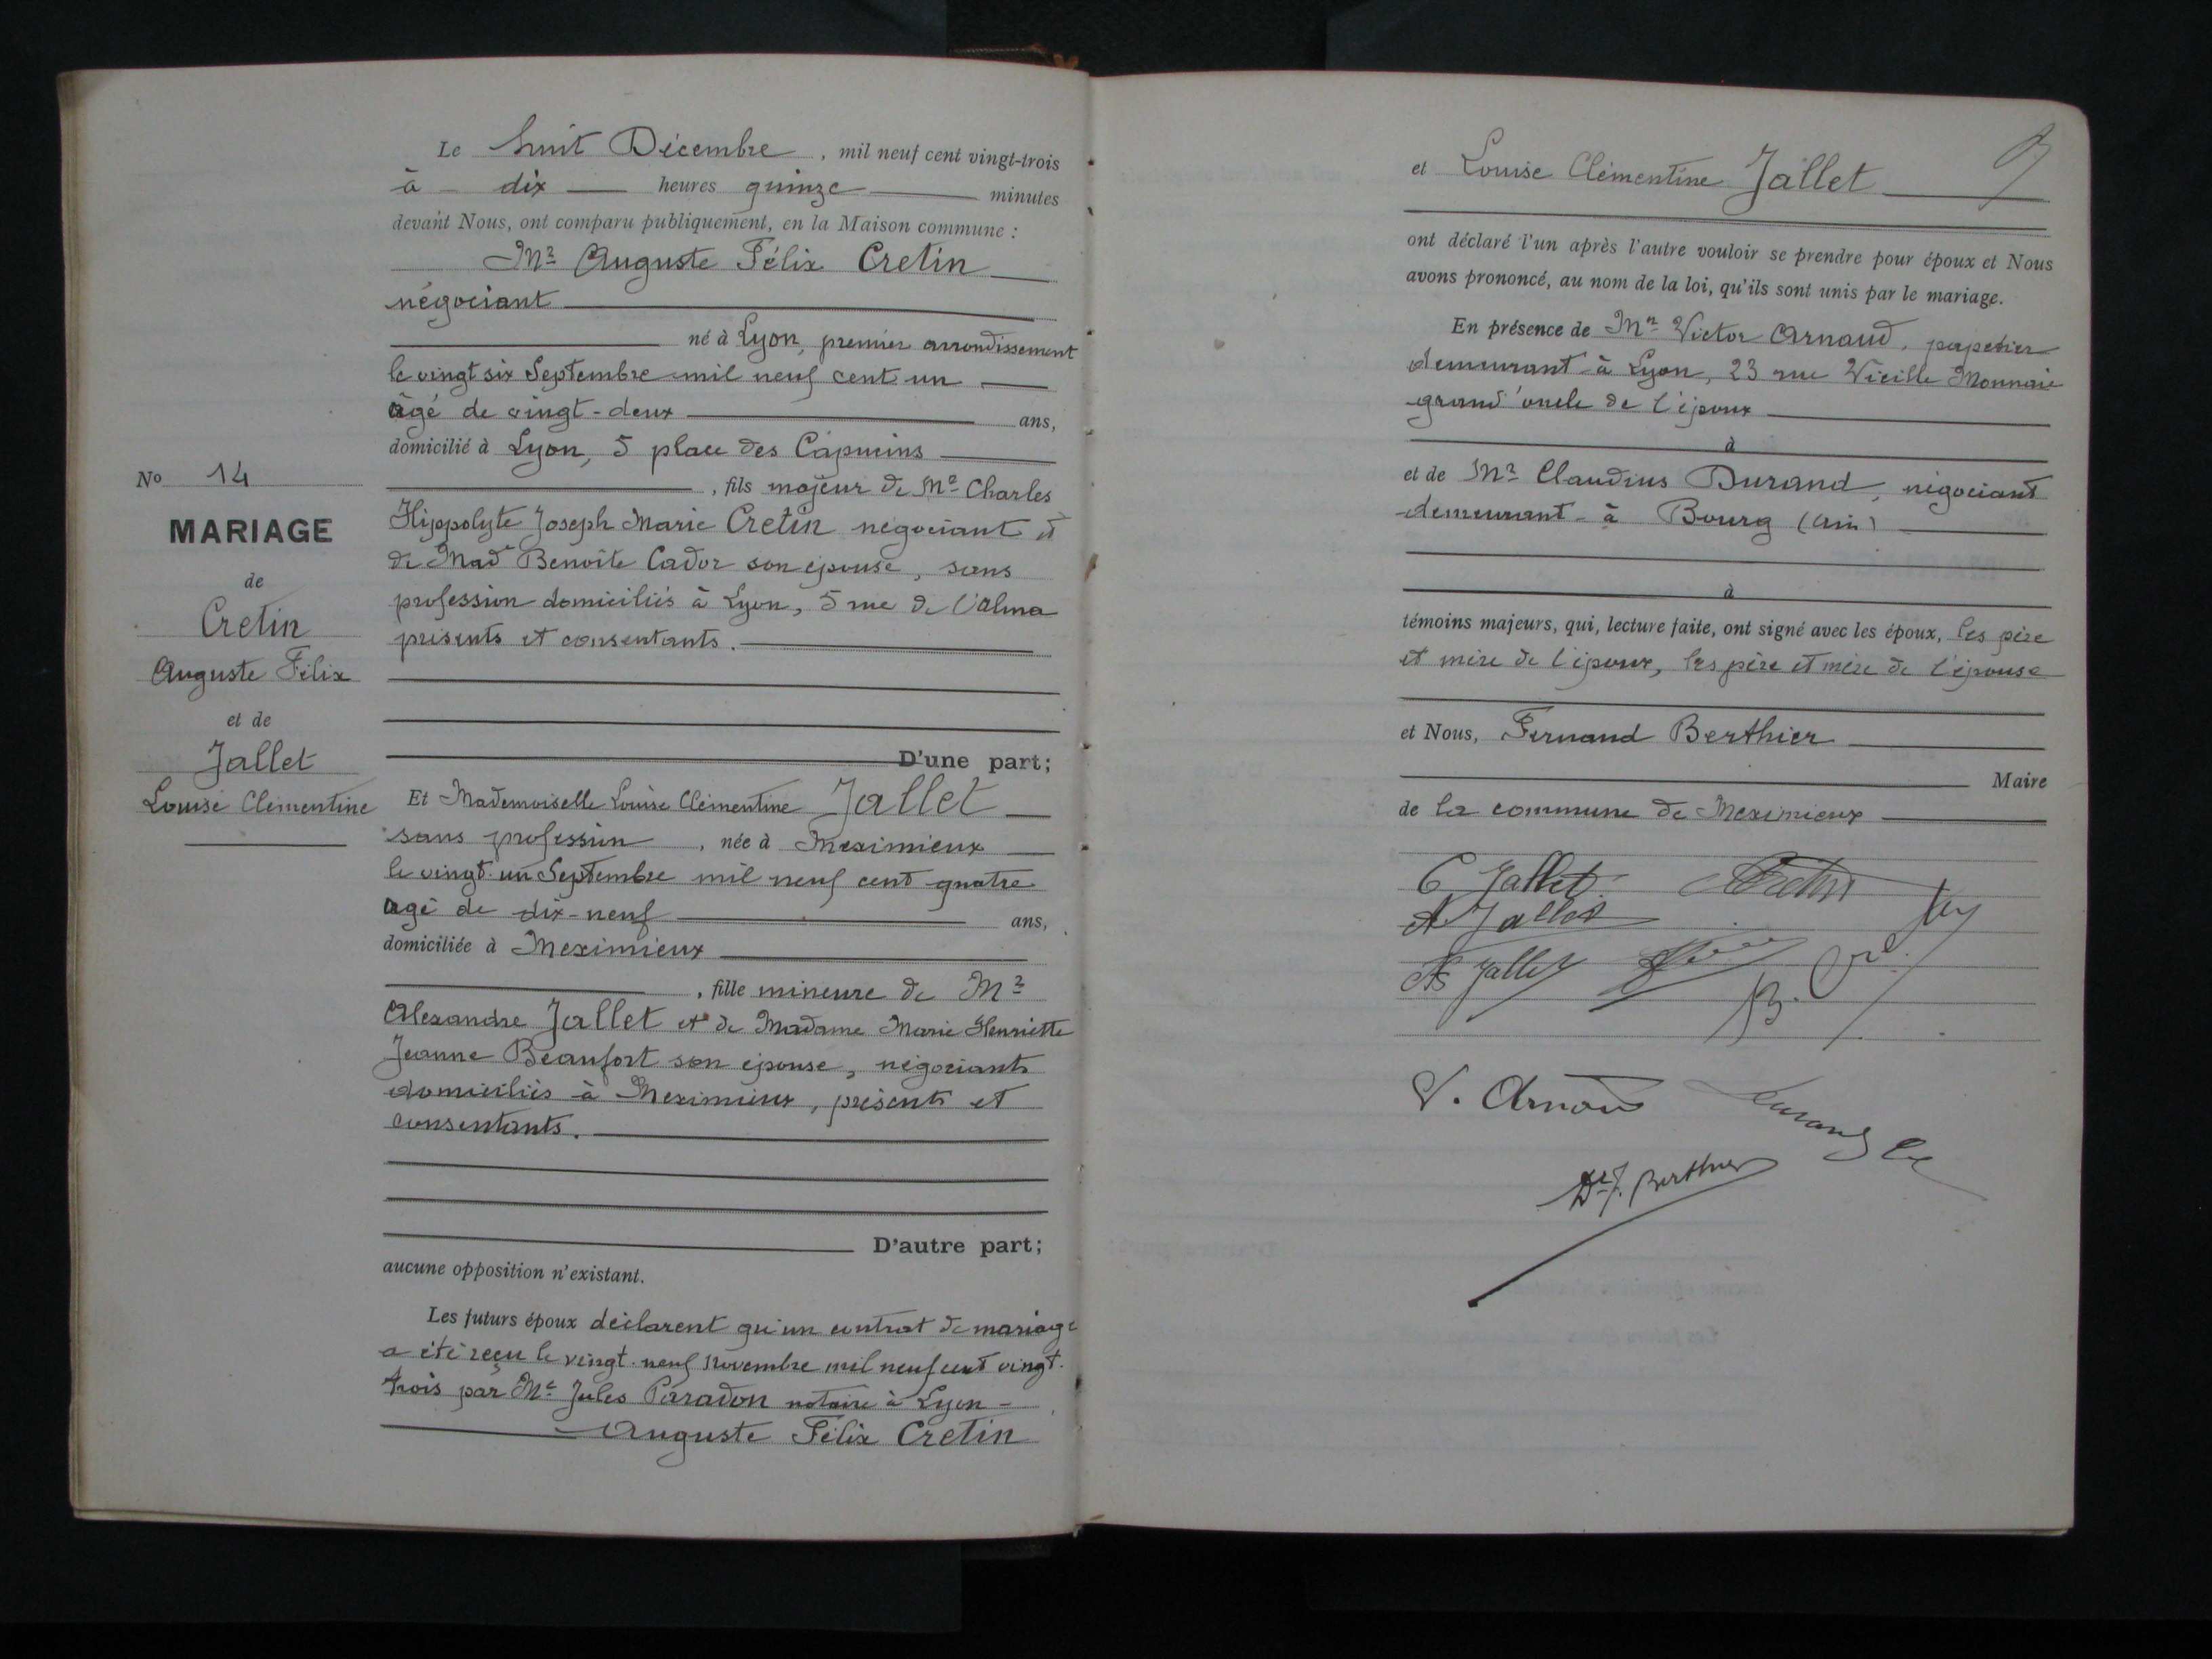 No 14
MARIAGE
de
Cretin
Auguste Félix
et de
Jallet
Louise Clémentine
Le huit Décembre, mil neuf cent vingt-trois
à dix heures quinze minutes
devant Nous, ont comparu publiquement, en la Maison commune :
Mr Auguste Félix Cretin
négociant
né à Lyon, premier arrondissement
le vingt six Septembre mil neuf cent un
âgé de vingt-deux ans,
domicilié à Lyon, 5 place des Capucins
, fils majeur de Mr Charles
Hippolyte Joseph Marie Cretin négociant et
de Made Benoîte Cador son épouse, sans
profession domiciliés à Lyon, 5 rue de l'Alma
présents et consentants.
D'une part;
Et Mademoiselle Louise Clémentine Jallet
sans profession, née à Meximieux
le vingt-un Septembre mil neuf cent quatre
âgé de dix-neuf ans,
domiciliée à Meximieux
, fille mineure de Mr
Alexandre Jallet et de Madame Marie Henriette
Jeanne Beaufort son épouse, négociants
domiciliés à Meximieux, présents et
consentants.
D'autre part;
aucune opposition n'existant.
Les futurs époux déclarent qu'un contrat de mariage
a été reçu le vingt-neuf Novembre mil neuf cent vingt-
trois par Me Jules Paradon notaire à Lyon -
Auguste Félix Cretin
9
et Louise Clémentine Jallet
ont déclaré l'un après l'autre vouloir se prendre pour époux et Nous
avons prononcé, au nom de la loi, qu'ils sont unis par le mariage.
En présence de Mr Victor Arnaud, papetier
demeurant à Lyon, 23 rue Vieille Monnaie
grand'oncle de l'époux
à
et de Mr Claudius Durand, négociant
demeurant à Bourg (Ain)
à
témoins majeurs, qui, lecture faite, ont signé avec les époux, les père
et mère de l'époux, les père et mère de l'épouse
et Nous, Fernand Berthier
Maire
de la commune de Meximieux
C Jallet Cretin
A. Jallet
Jallet
B.
V. Arnaud Durand Cl
Dr F. Berthier